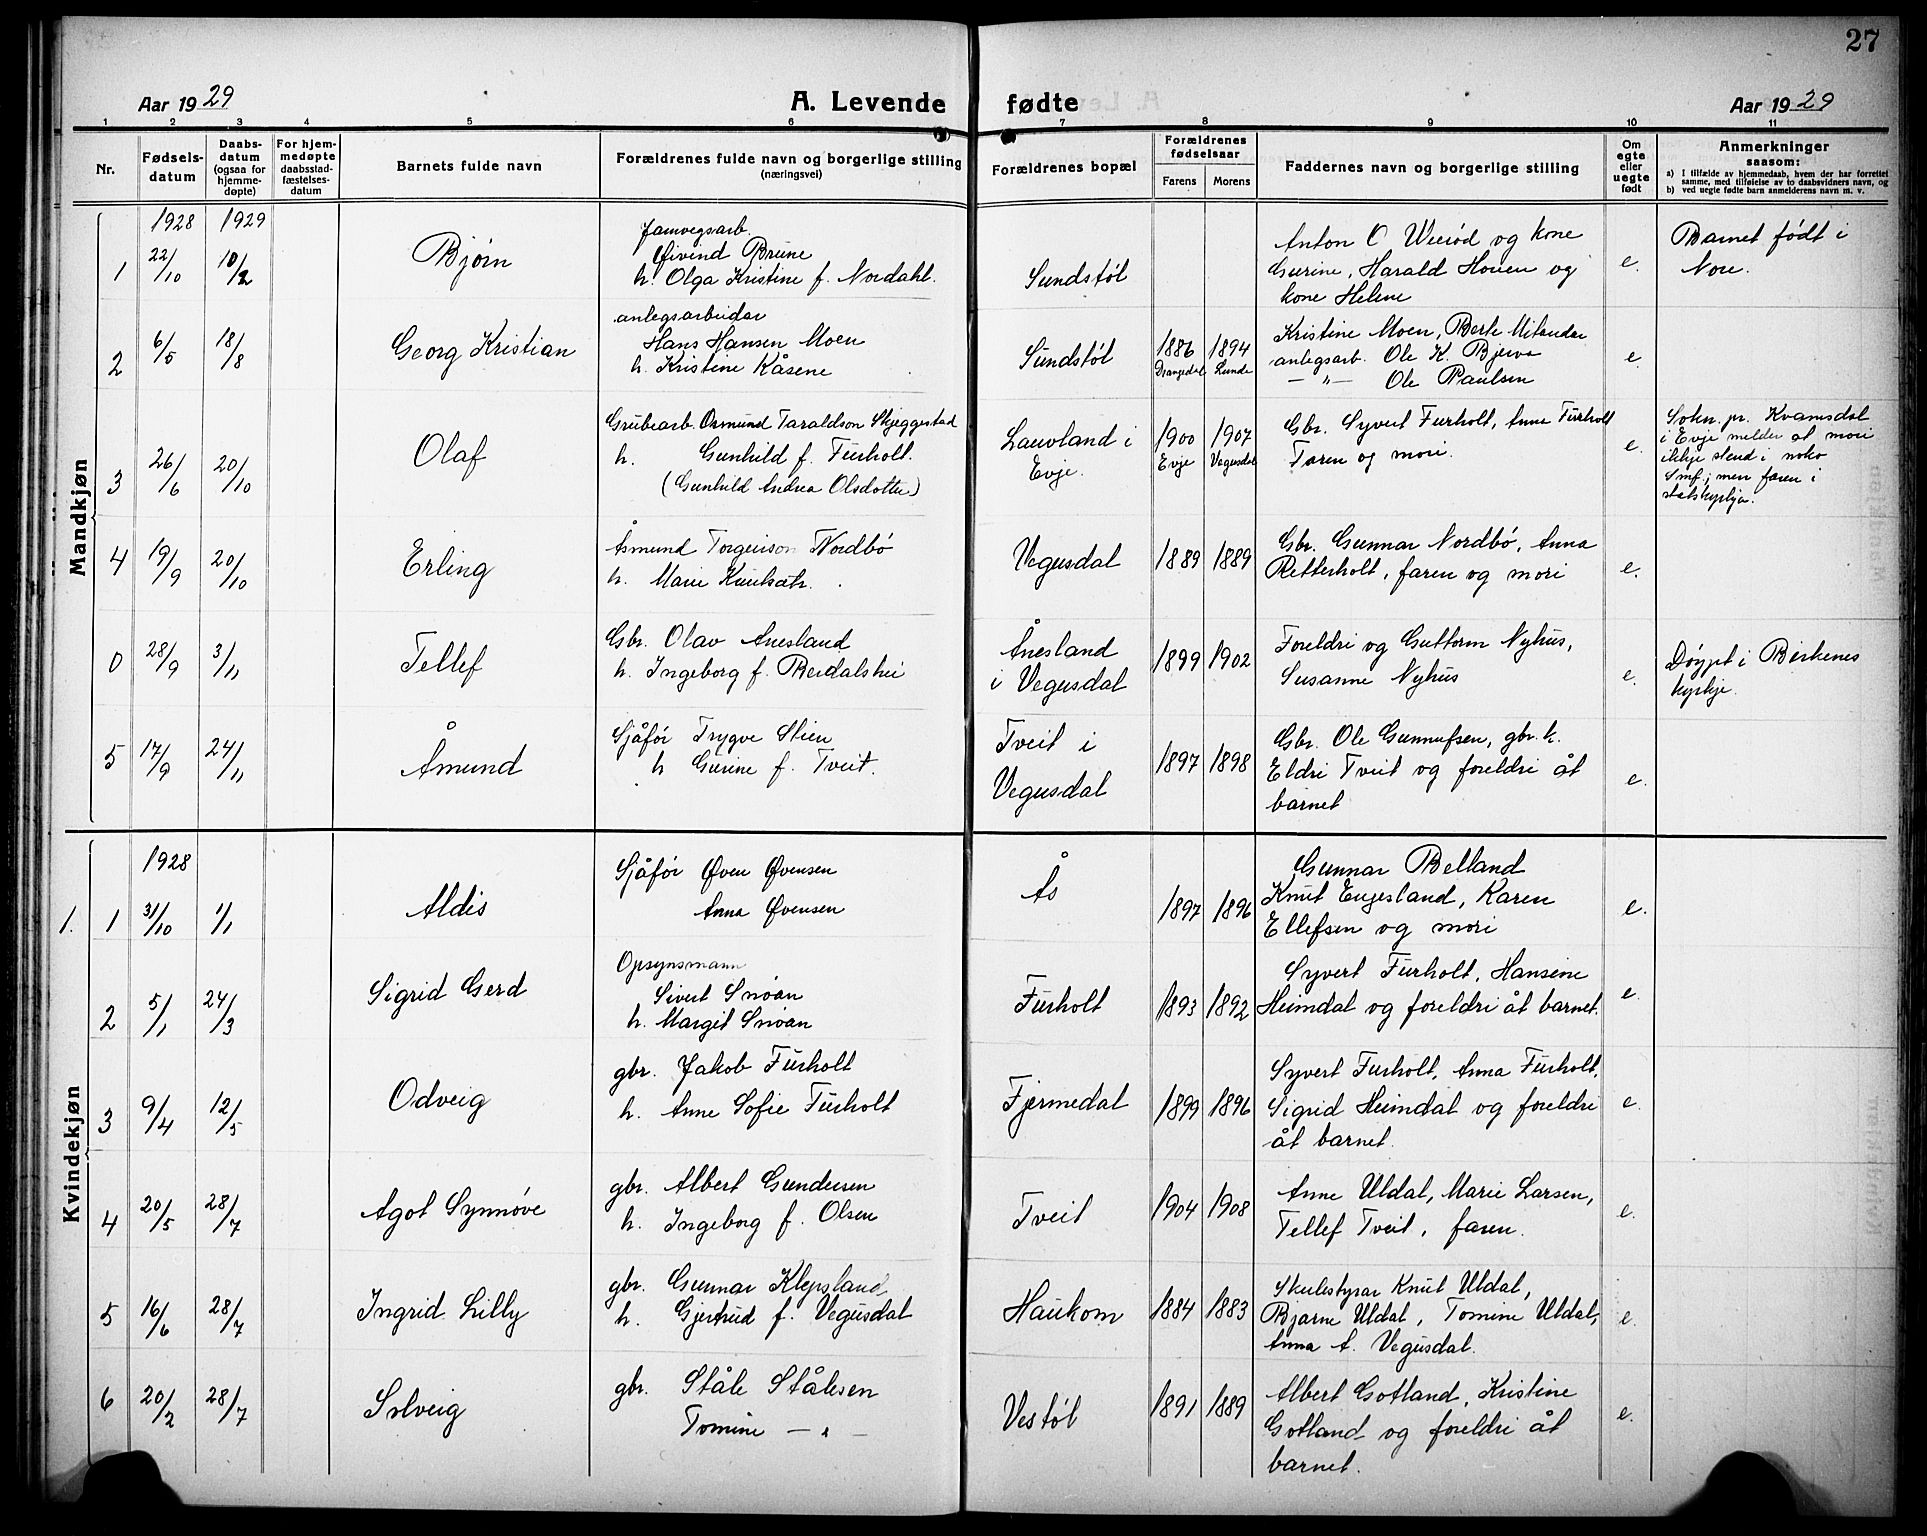 27
Aar 1929
A. Levende fødte
Aar 1929
1 2 3 4 5 6 7 8 9 10 11
Nr.
Fødsels-
datum
Daabs-
datum
(ogsaa for
hjemme-
døpte)
For hjem-
medøpte
daabsstad-
fæstelses-
datum
Barnets fulde navn
Forældrenes fulde navn og borgerlige stilling
(næringsvei)
Forældrenes bopæl
Forældrenes
fødselsaar
Farens Morens
Faddernes navn og borgerlige stilling
Om
egte
eller
uegte
født
Anmerkninger
saasom:
a) I tilfælde av hjemmedaab, hvem der har forrettet
samme, med tilføielse av to daabsvidners navn, og
b) ved uegte fødte barn anmelderens navn m. v.
Mandkjøn
1928 1929
1 22/10 10/2 Bjørn
Jarnvegsarb.
Øivind Brune
h. Olga Kristine f. Nordahl.
Sundstøl
Anton O Weiød og kone
Gurine, Harald Houen og
kone Helene
e.
Barnet født i
Nore.
2 6/5 18/8 Georg Kristian
anlegsarbeidar
Hans Hansen Moen
h. Kristine Kåsene
Sundstøl
1886 1894
Drangedal Lunde
Kristine Moen, Berte Mitandar
anlegsarb. Ole K. Bjerva
— " — Ole Paulsen
e.
3 26/6 20/10 Olaf
Grubearb. Ormund Taraldson Skjeggestad
h. Gunhild f. Furholt.
(Gunhild Andrea Olsdotter)
Lauvland i
Evje.
1900 1907
Evje Vegusdal
Gbr. Syvert Furholt, Anne Furholt
Faren og mori.
e.
Sokn. pr. Kvamsdal
i Evje melder at mori
ikkje stend i noko
Smf.; men faren i
statskyrkja.
4 19/9 20/10 Erling
Åsmund Torgeirson Nordbø
h. Marie Knutsatr.
Vegusdal
1889 1889
Gbr. Gunnar Nordbø, Anna
Retterholt, faren og mori
e.
0 28/9 3/11 Tellef
Gbr. Olav Ånesland
h. Ingeborg f. Berdalshei
Ånesland
i Vegusdal
1899 1902
Foreldri og Guttorm Nyhus,
Susanne Nyhus
e.
Døypt i Birkenes
kyrkje.
5 17/9 24/11 Åmund
Sjåfør Trygve Stien
h Gurine f. Tveit.
Tveit i
Vegusdal
1897 1898
Gbr. Ole Gunnufsen, gbr. k.
Eldri Tveit og foreldri åt
barnet
e.
Kvindekjøn
1928
1. 1 31/10 1/1 Aldis
Sjåfør Øven Øvensen
Anna Øvensen
Ås
1897 1896
Gunnar Belland
Knut Engesland, Karen
Ellefsen og mori
e.
2 5/1 24/3 Sigrid Gerd
Opsynsmann
Sivert Snøan
h. Margit Snøan
Furholt
1893 1892
Syvert Furholt, Hansine
Heimdal og foreldri åt barnet.
e.
3 9/4 12/5 Odveig
gbr. Jakob Furholt
h. Anne Sofie Furholt
Fjermedal
1899 1896
Syvert Furholt, Anna Furholt,
Sigrid Heimdal og foreldri
åt barnet.
e.
4 20/5 28/7 Agot Synnøve
gbr. Albert Gundersen
h. Ingeborg f. Olsen
Tveit
1904 1908
Anne Uldal, Marie Larsen,
Tellef Tveit, faren.
e.
5 16/6 28/7 Ingrid Lilly
gbr. Gunnar Klepsland
h. Gjertrud f. Vegusdal
Haukom
1884 1883
Skulestyrar Knut Uldal,
Bjarne Uldal, Tomine Uldal,
Anna A. Vegusdal.
e.
6 20/2 28/7 Solveig
gbr. Ståle Stålesen
Tomine — " —
Vestøl
1891 1889
Albert Gotland, Kristine
Gotland og foreldri åt
barnet.
e.